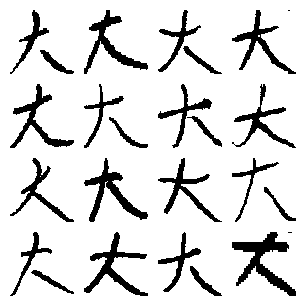 大大大大
大大大大
大大大大
大大大大